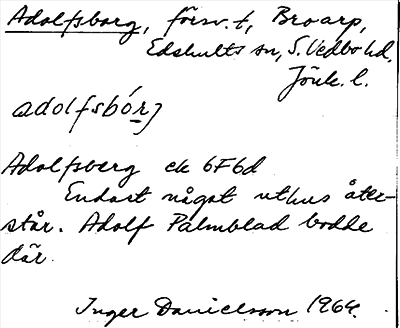 Adolfsborg, försv. t, Broarp,
Edshults sn, S. Vedbo hd,
Jönk. l.
adolfsbórj
Adolfsberg ek 6F6d
Endast något uthus åter-
står. Adolf Palmblad bodde
där.
Inger Danielsson 1964.